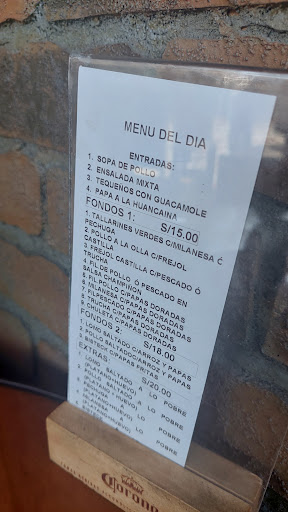 MENU DEL DIA
ENTRADAS:
1. SOPA DE POLLO
2. ENSALADA MIXTA
3. TEQUEÑOS CON GUACAMOLE
4. PAPA A LA HUANCAINA
FONDOS 1: S/15.00
1. TALLARINES VERDES C/MILANESA Ó
PECHUGA
2. POLLO A LA OLLA C/FREJOL
CASTILLA
3. FREJOL CASTILLA C/PESCADO Ó
TRUCHA
4. FIL DE POLLO Ó PESCADO EN
SALSA CHAMPIÑON
5. FIL POLLO C/PAPAS DORADAS
6. MILANESA C/PAPAS DORADAS
7. FILPESCADO C/PAPAS DORADAS
8. TRUCHA C/PAPAS DORADAS
9. CHULETA C/PAPAS DORADAS
FONDOS 2: S/18.00
1. LOMO SALTADO C/ARROZ Y PAPAS
2. POLLO SALTADO C/ARROZ Y PAPAS
3. BISTEC C/PAPAS FRITAS Y PAPAS
EXTRAS: S/20.00
SALTADO A LO POBRE
(PLATANO/HUEVO)
A LO POBRE
(PLATANO/HUEVO)
A LO POBRE
A LO POBRE
Corona